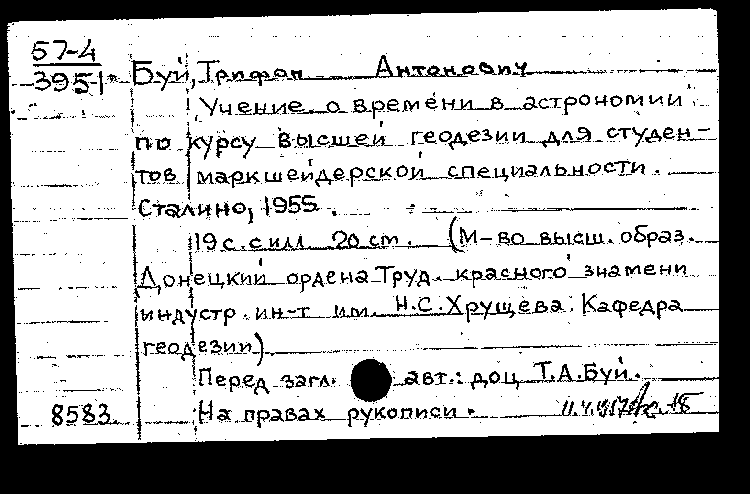 57-4
3951
Буй, Трифон Антонович
Учение о времени в астрономии
по курсу высшей геодезии для студен-
тов маркшейдерской специальности.
Сталино, 1955.
19 с. с илл. 20 cm. (М-во высш. образ.
Донецкий ордена Труд. красного знамени
индустр. ин-т им. Н.С. Хрущева. Кафедра
геодезии)
Перед загл. авт.: доц Т.А. Буй.
8583. На правах рукописи.